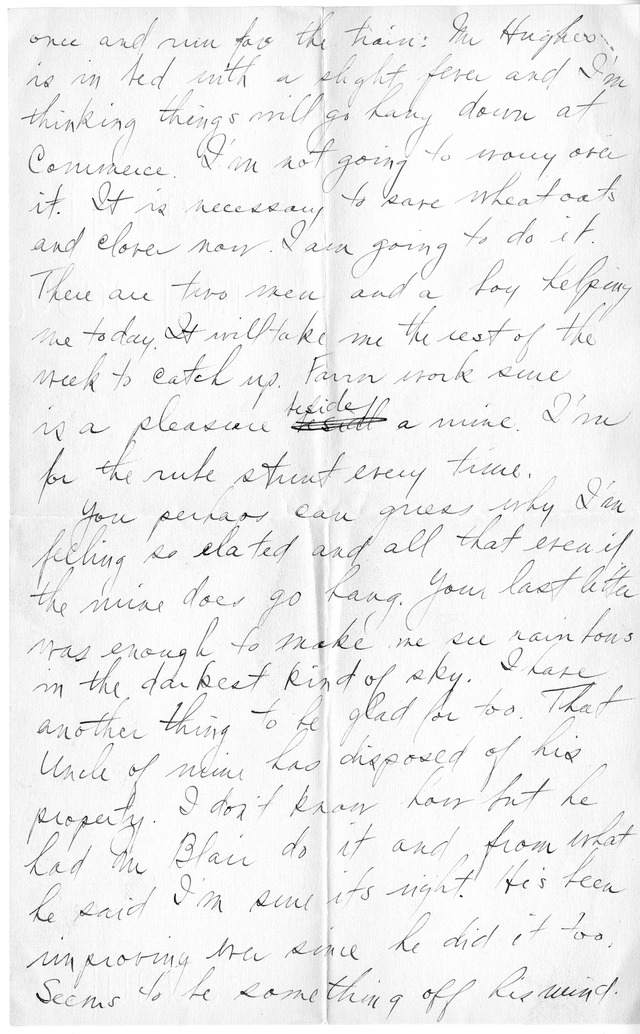 once and run for the train: Mr Hughes
is in bed with a slight fever and I'm
thinking things will go hang down at
Commerce. I'm not going to worry over
it. It is necessary to save wheat oats
and clover now. I am going to do it.
There are two men and a boy helping
me today. It will take me the rest of the
week to catch up. Farm work sure
is a pleasure beside a mine. I'm
for the rube stunt every time.
You perhaps can guess why I'm
feeling so elated and all that even if
the mine does go hang. Your last letter
was enough to make me see rainbows
in the darkest kind of sky. I have
another thing to be glad for too. That
Uncle of mine has disposed of his
property. I don't know how but he
had Mr Blair do it and from what
he said I'm sure it's right. He's been
improving ever since he did it too.
Seems to be something off his mind.